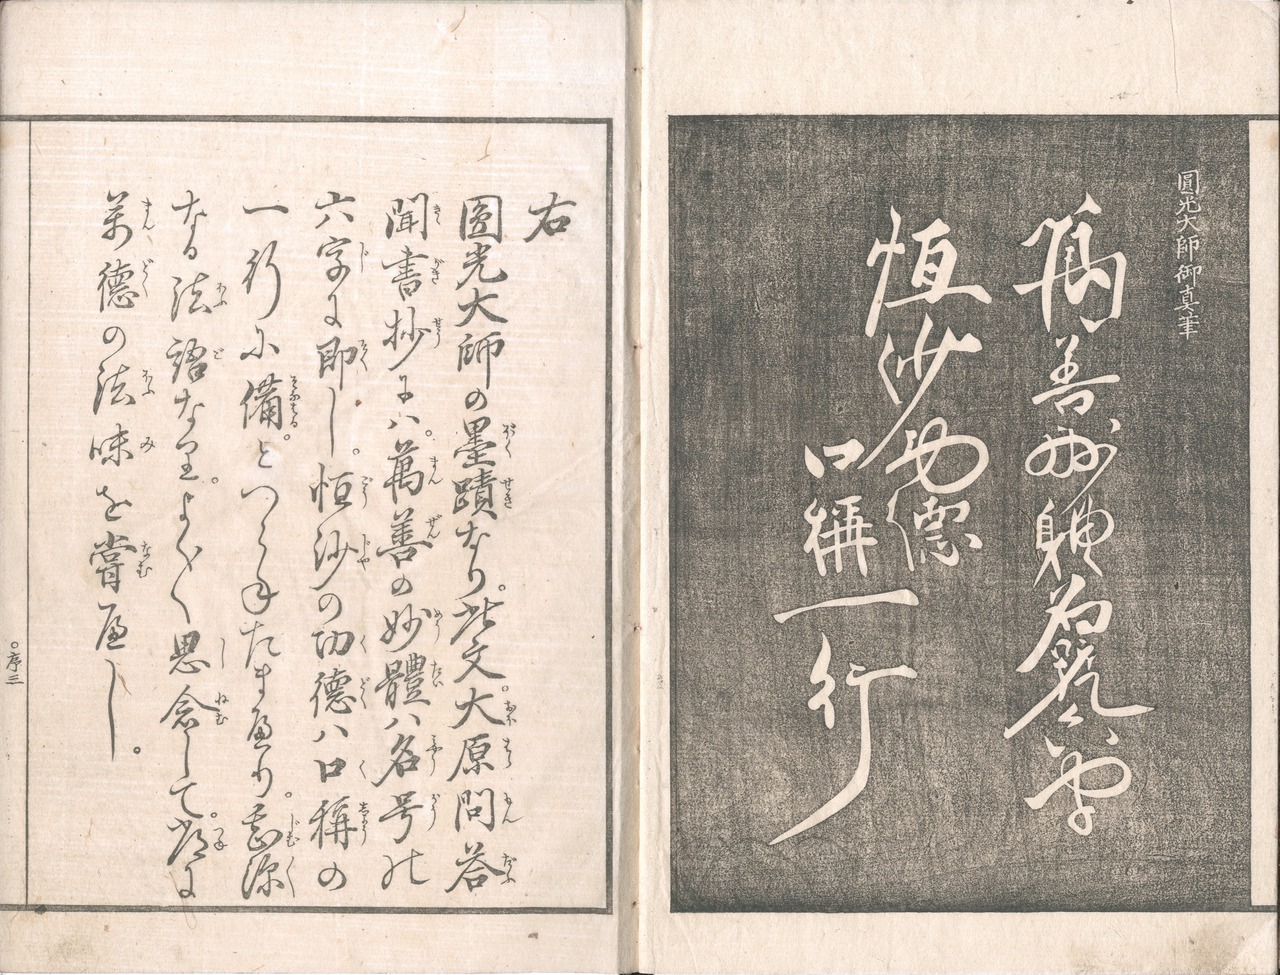 圓光大師御真筆
萬善妙躰名號六字
恒沙功德
口稱一行
右
圓光大師の墨蹟なり。此文。大原問答
聞書抄にハ。萬善の妙體ハ名号の
六字に即し。恒沙の功德ハ口稱の
一行に備。とつらねたまへり。甚深
なる法語なり。よく〱思念して。常に
萬德の法味を嘗へし。
○序三